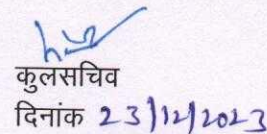 कुलसचिव
दिनांक 23/12/2023